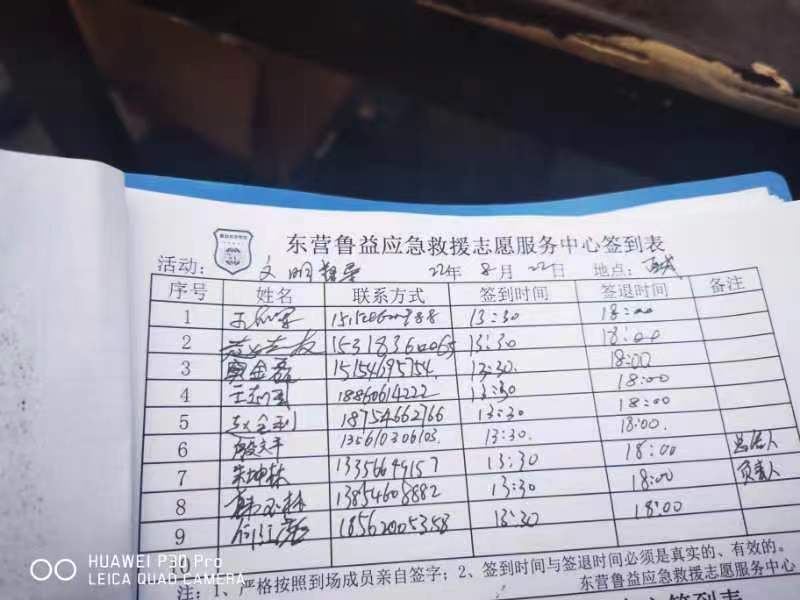 东营鲁益应急救援志愿服务中心签到表
活动: 文明督导 22年8月22日 地点: 西城
序号 姓名 联系方式 签到时间 签退时间 备注
1 13:30 18:00
2 13:30 18:00
3 15154695754 13:30 18:00
4 18860614222 13:30 18:00
5 赵金利 18754662766 13:30 18:00
6 135610306103 13:30 18:00
7 朱坤林 13356649157 13:30 18:00 总结人
8 韩玉林 13854608882 13:30 18:00 负责人
9 18562005358 13:30 18:00
10
注:1、严格按照到场成员亲自签字;2、签到时间与签退时间必须是真实的、有效的。
东营鲁益应急救援志愿服务中心
HUAWEI P30 Pro
LEICA QUAD CAMERA